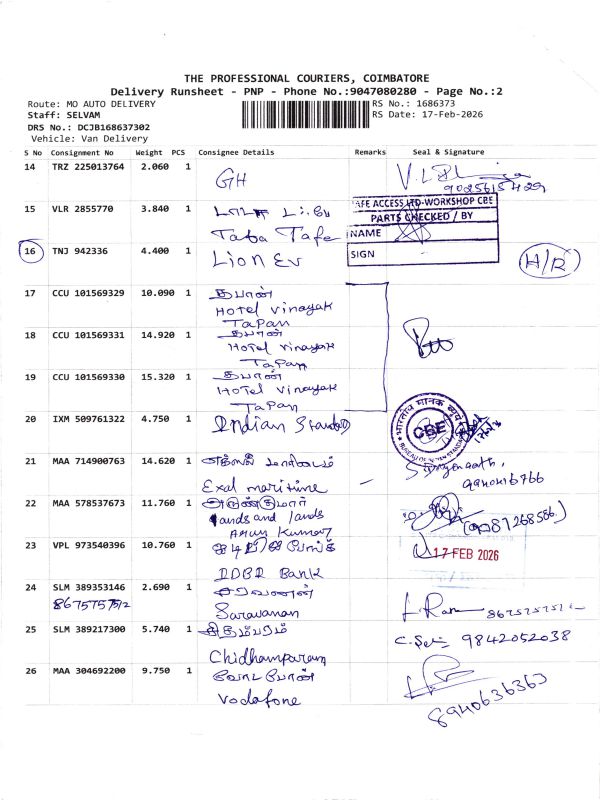 THE PROFESSIONAL COURIERS, COIMBATORE
Delivery Runsheet - PNP - Phone No.:9047080280 - Page No.:2
Route: MO AUTO DELIVERY
RS No.: 1686373
Staff: SELVAM
RS Date: 17-Feb-2026
DRS No.: DCJB168637302
Vehicle: Van Delivery
S No Consignment No Weight PCS Consignee Details Remarks Seal & Signature
14 TRZ 225013764 2.060 1 GH
9025615429
15 VLR 2855770 3.840 1 டாடா டஃபே
Tata Tafe
AFE ACCESS LTD-WORKSHOP CBE
PARTS CHECKED / BY
NAME
SIGN
16 TNJ 942336 4.400 1 Lion Ev
H/R
17 CCU 101569329 10.090 1 தபான்
Hotel Vinayak
Tapan
18 CCU 101569331 14.920 1 தபான்
Hotel Vinayak
Tapan
19 CCU 101569330 15.320 1 தபான்
Hotel Vinayak
Tapan
20 IXM 509761322 4.750 1 Indian Standard
भारतीय मानक ब्यूरो
CBE
BUREAU OF INDIAN STANDARDS
21 MAA 714900763 14.620 1
Exal maritime -
22 MAA 578537673 11.760 1 அருண்குமார்
lands and lands
Arun Kumar
23 VPL 973540396 10.760 1 ஐடிபிஐ பேங்க்
IDBI Bank
17 FEB 2026
24 SLM 389353146 2.690 1 சரவணன்
8675757512
Saravanan
25 SLM 389217300 5.740 1 சிதம்பரம்
Chidhamparam
9842052038
26 MAA 304692200 9.750 1 வோடபோன்
Vodafone
8940636363